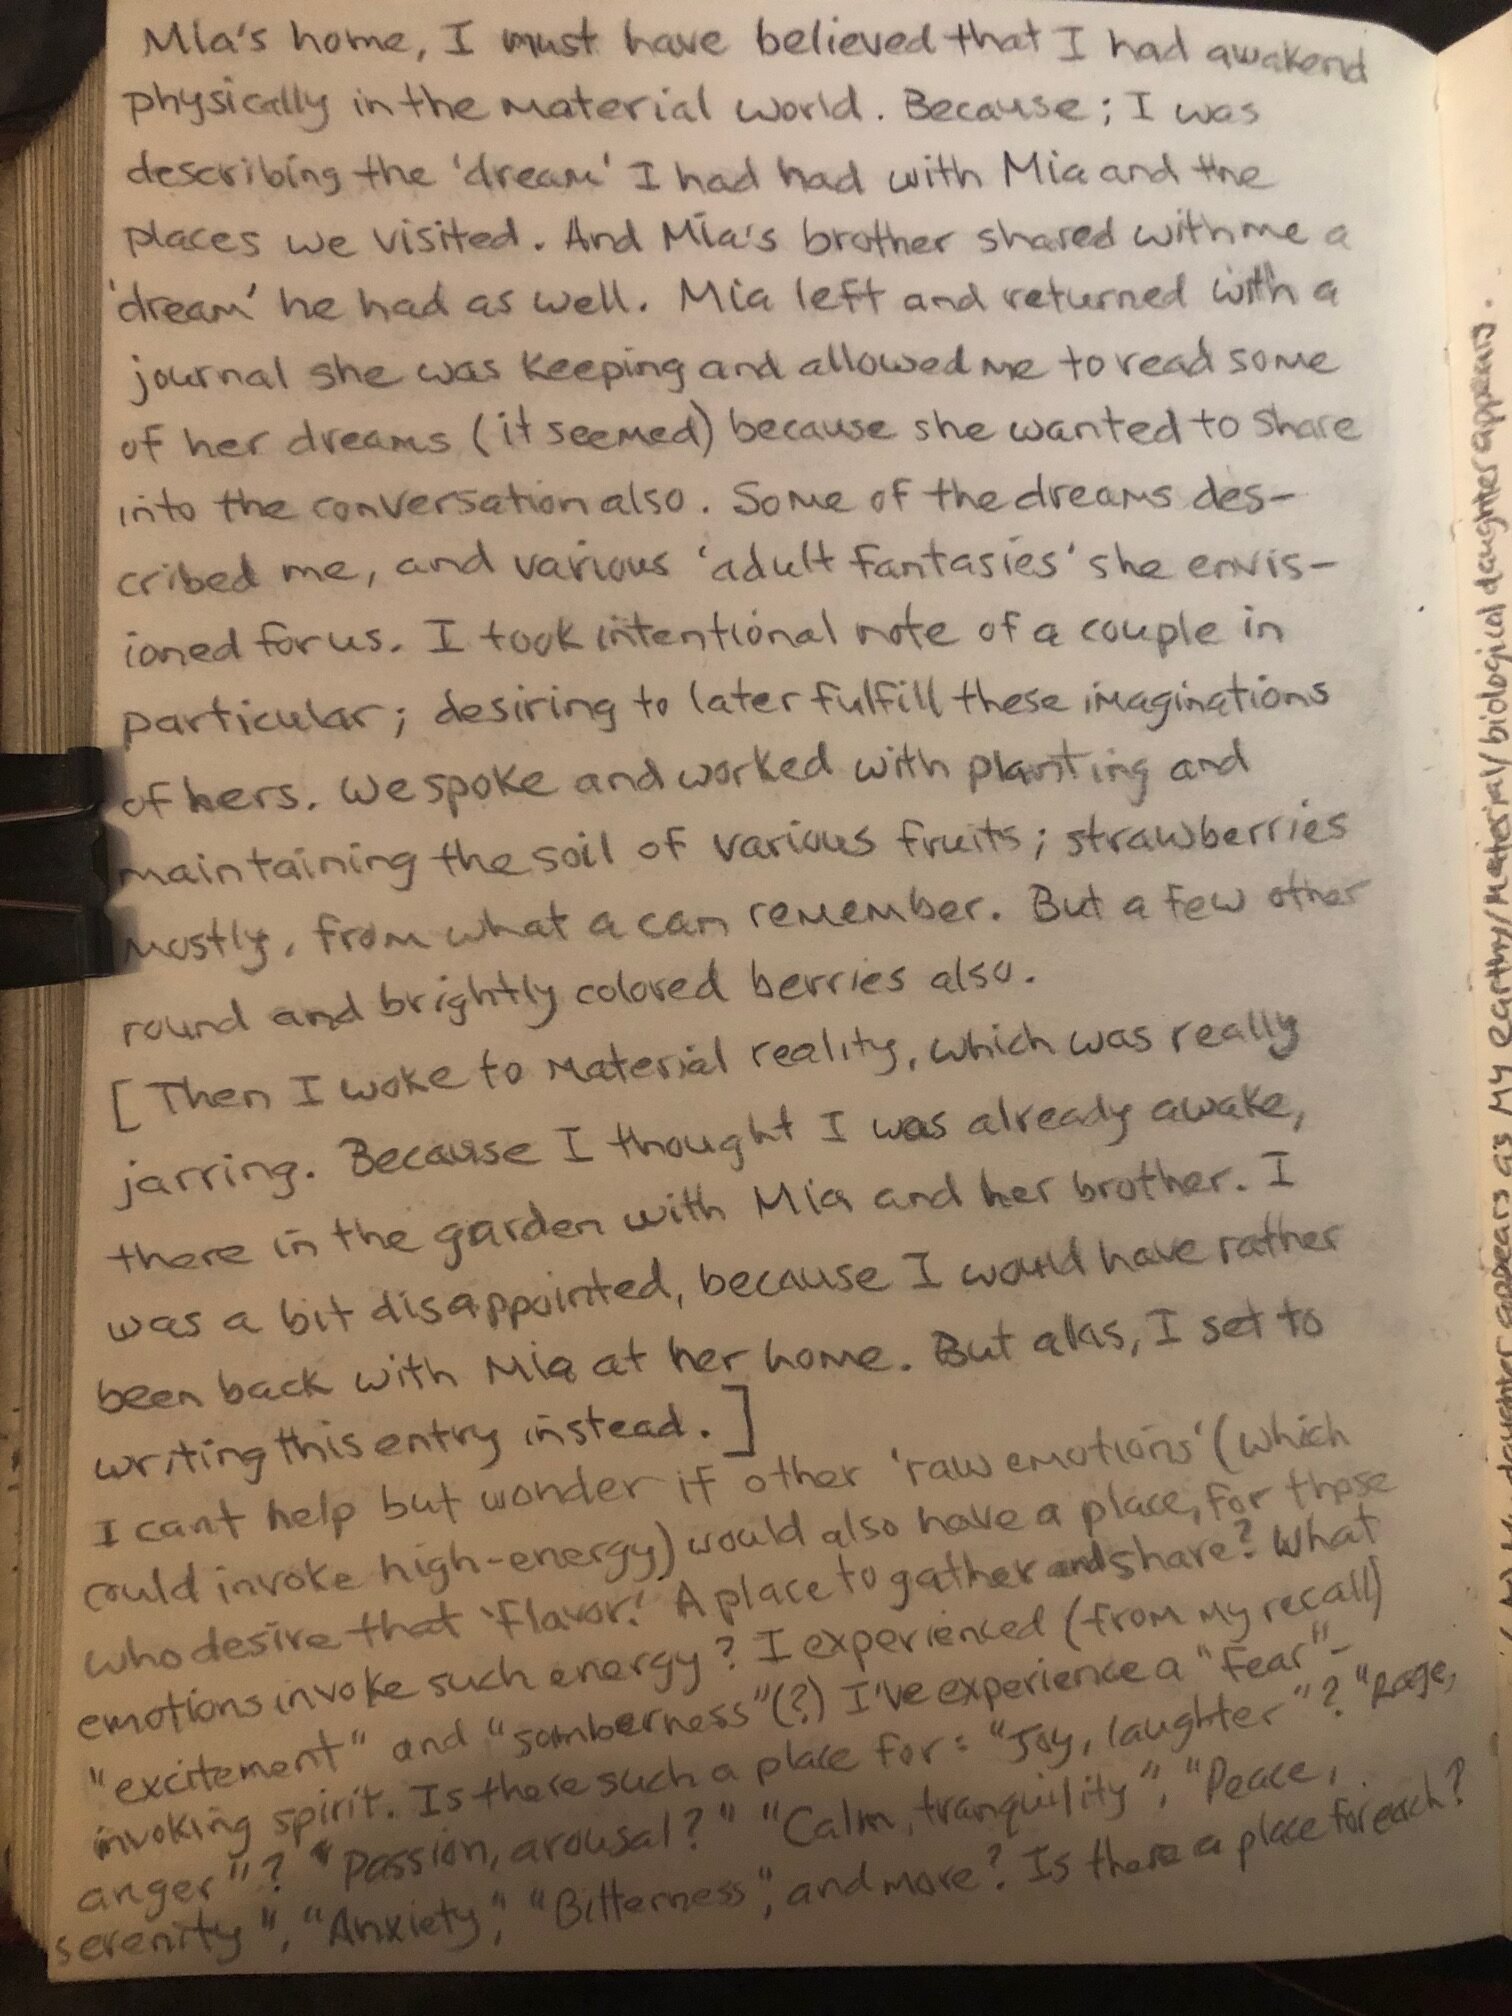 Mia's home, I must have believed that I had awakend
physically in the material world. Because; I was
describing the 'dream' I had had with Mia and the
places we visited. And Mia's brother shared with me a
'dream' he had as well. Mia left and returned with a
journal she was keeping and allowed me to read some
of her dreams (it seemed) because she wanted to share
into the conversation also. Some of the dreams des-
cribed me, and various 'adult fantasies' she envis-
ioned for us. I took intentional note of a couple in
particular; desiring to later fulfill these imaginations
of hers. We spoke and worked with planting and
maintaining the soil of various fruits; strawberries
mostly, from what a can remember. But a few other
round and brightly colored berries also.
[Then I woke to material reality, which was really
jarring. Because I thought I was already awake,
there in the garden with Mia and her brother. I
was a bit disappointed, because I would have rather
been back with Mia at her home. But alas, I set to
writing this entry instead.]
I cant help but wonder if other 'raw emotions' (which
could invoke high-energy) would also have a place, for those
who desire that 'flavor.' A place to gather and share? What
emotions invoke such energy? I experienced (from my recall)
"excitement" and "somberness"(?) I've experience a "Fear"-
invoking spirit. Is there such a place for: "Joy, laughter"? "Rage,
anger"? "Passion, arousal?" "Calm, tranquility", "Peace,
serenity", "Anxiety", "Bitterness", and more? Is there a place for each?
daughter appears as my earthy/material/biological daughter appears.